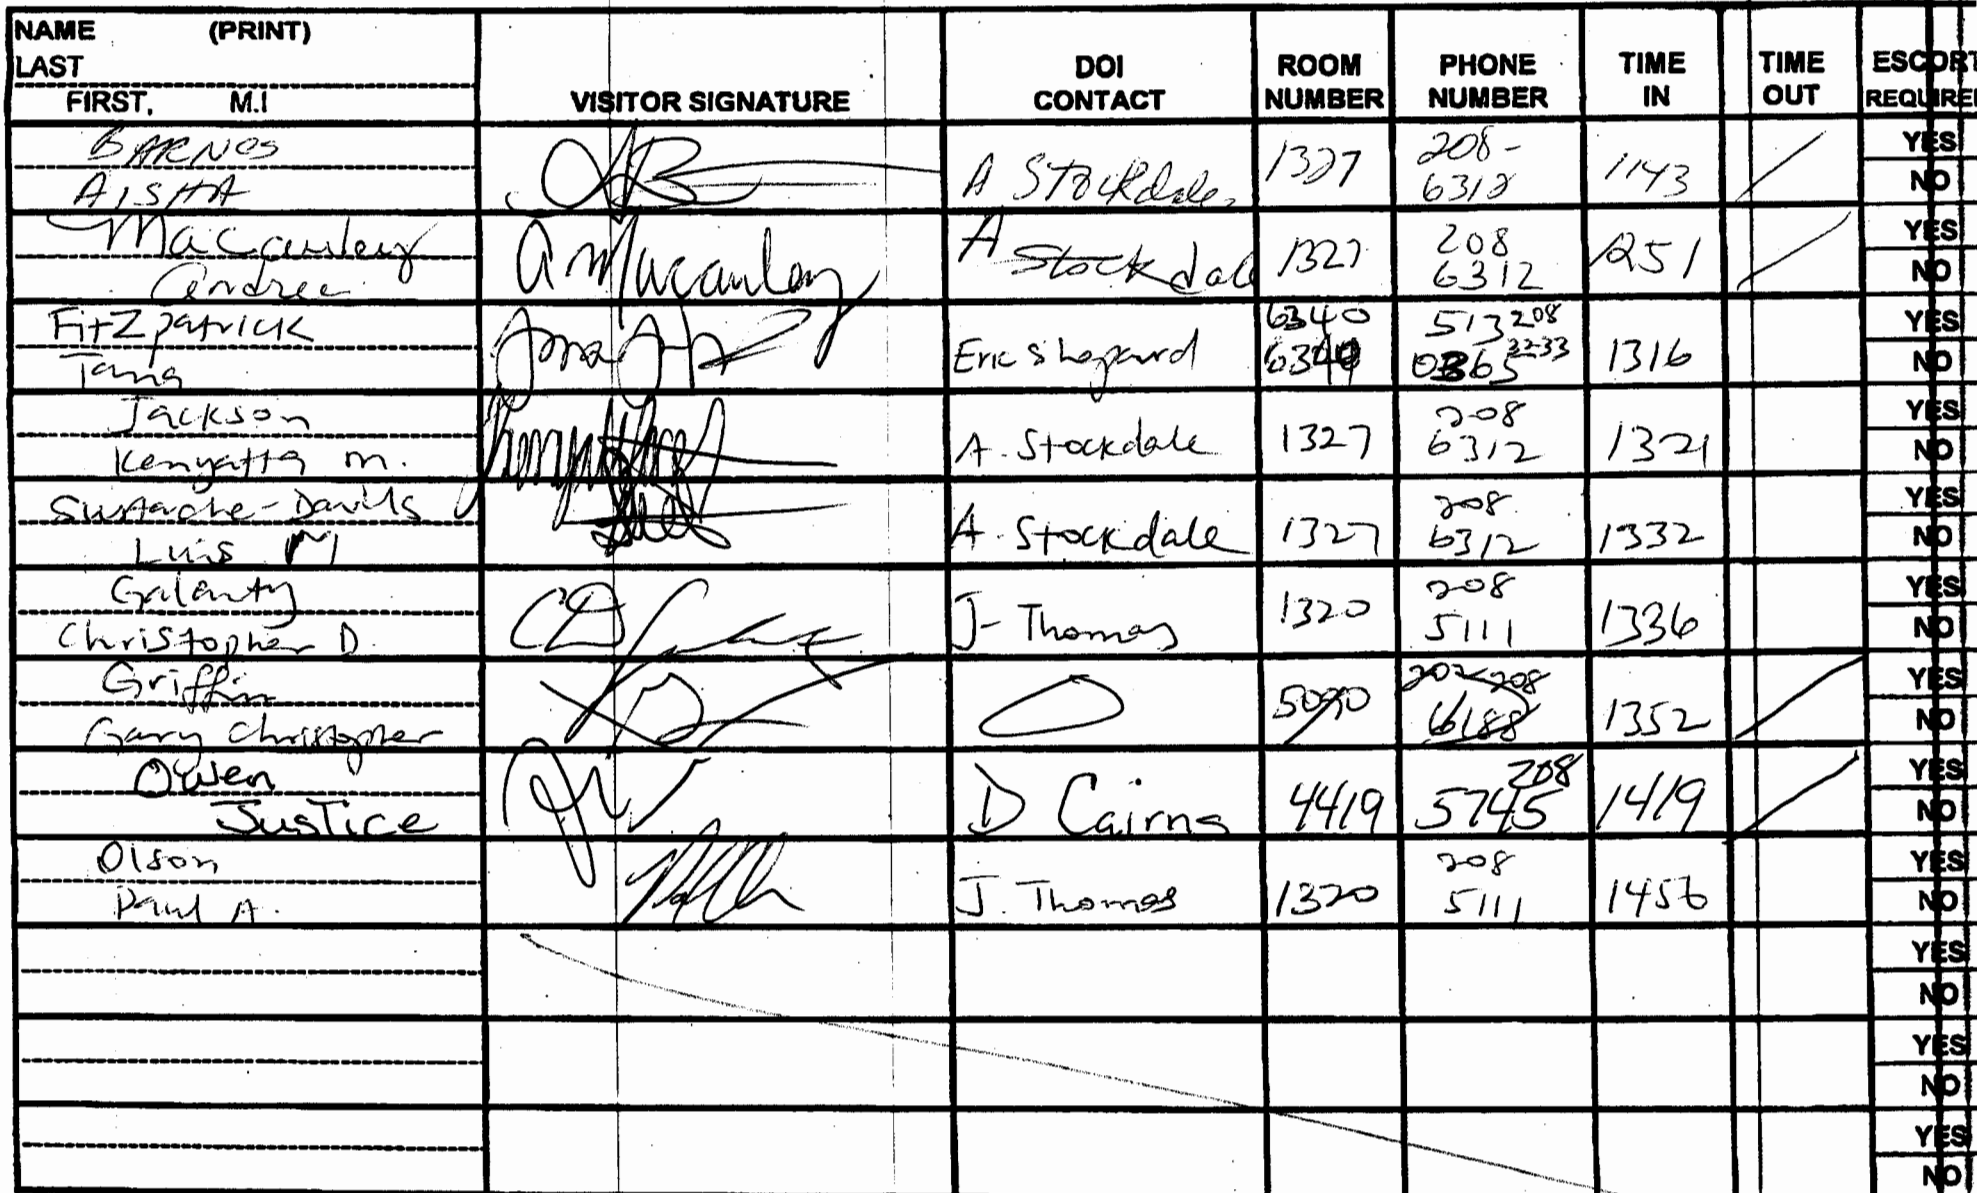 NAME (PRINT)
LAST
FIRST, M.I
VISITOR SIGNATURE
DOI CONTACT
ROOM NUMBER
PHONE NUMBER
TIME IN
TIME OUT
ESCORT REQUIRED
BARNES
AISHA
A Stockdale
1327
208-
6312
1143
YES
NO
Macauley
Andree
A Macauley
A Stockdale
1327
208
6312
1251
YES
NO
Fitzpatrick
Eric Shepard
6340
513 208
1316
YES
NO
Jackson
Kenyatta M.
A. Stockdale
1327
208
6312
1321
YES
NO
Luis M
A. Stockdale
1327
208
6312
1332
YES
NO
Galanty
Christopher D.
J- Thomas
1320
208
5111
1336
YES
NO
Griffin
Gary Christopher
5090
202-208
6188
1352
YES
NO
Owen
Justice
D Cairns
4419
208
5745
1419
YES
NO
Olson
Paul A.
J. Thomas
1320
208
5111
1456
YES
NO
YES
NO
YES
NO
YES
NO